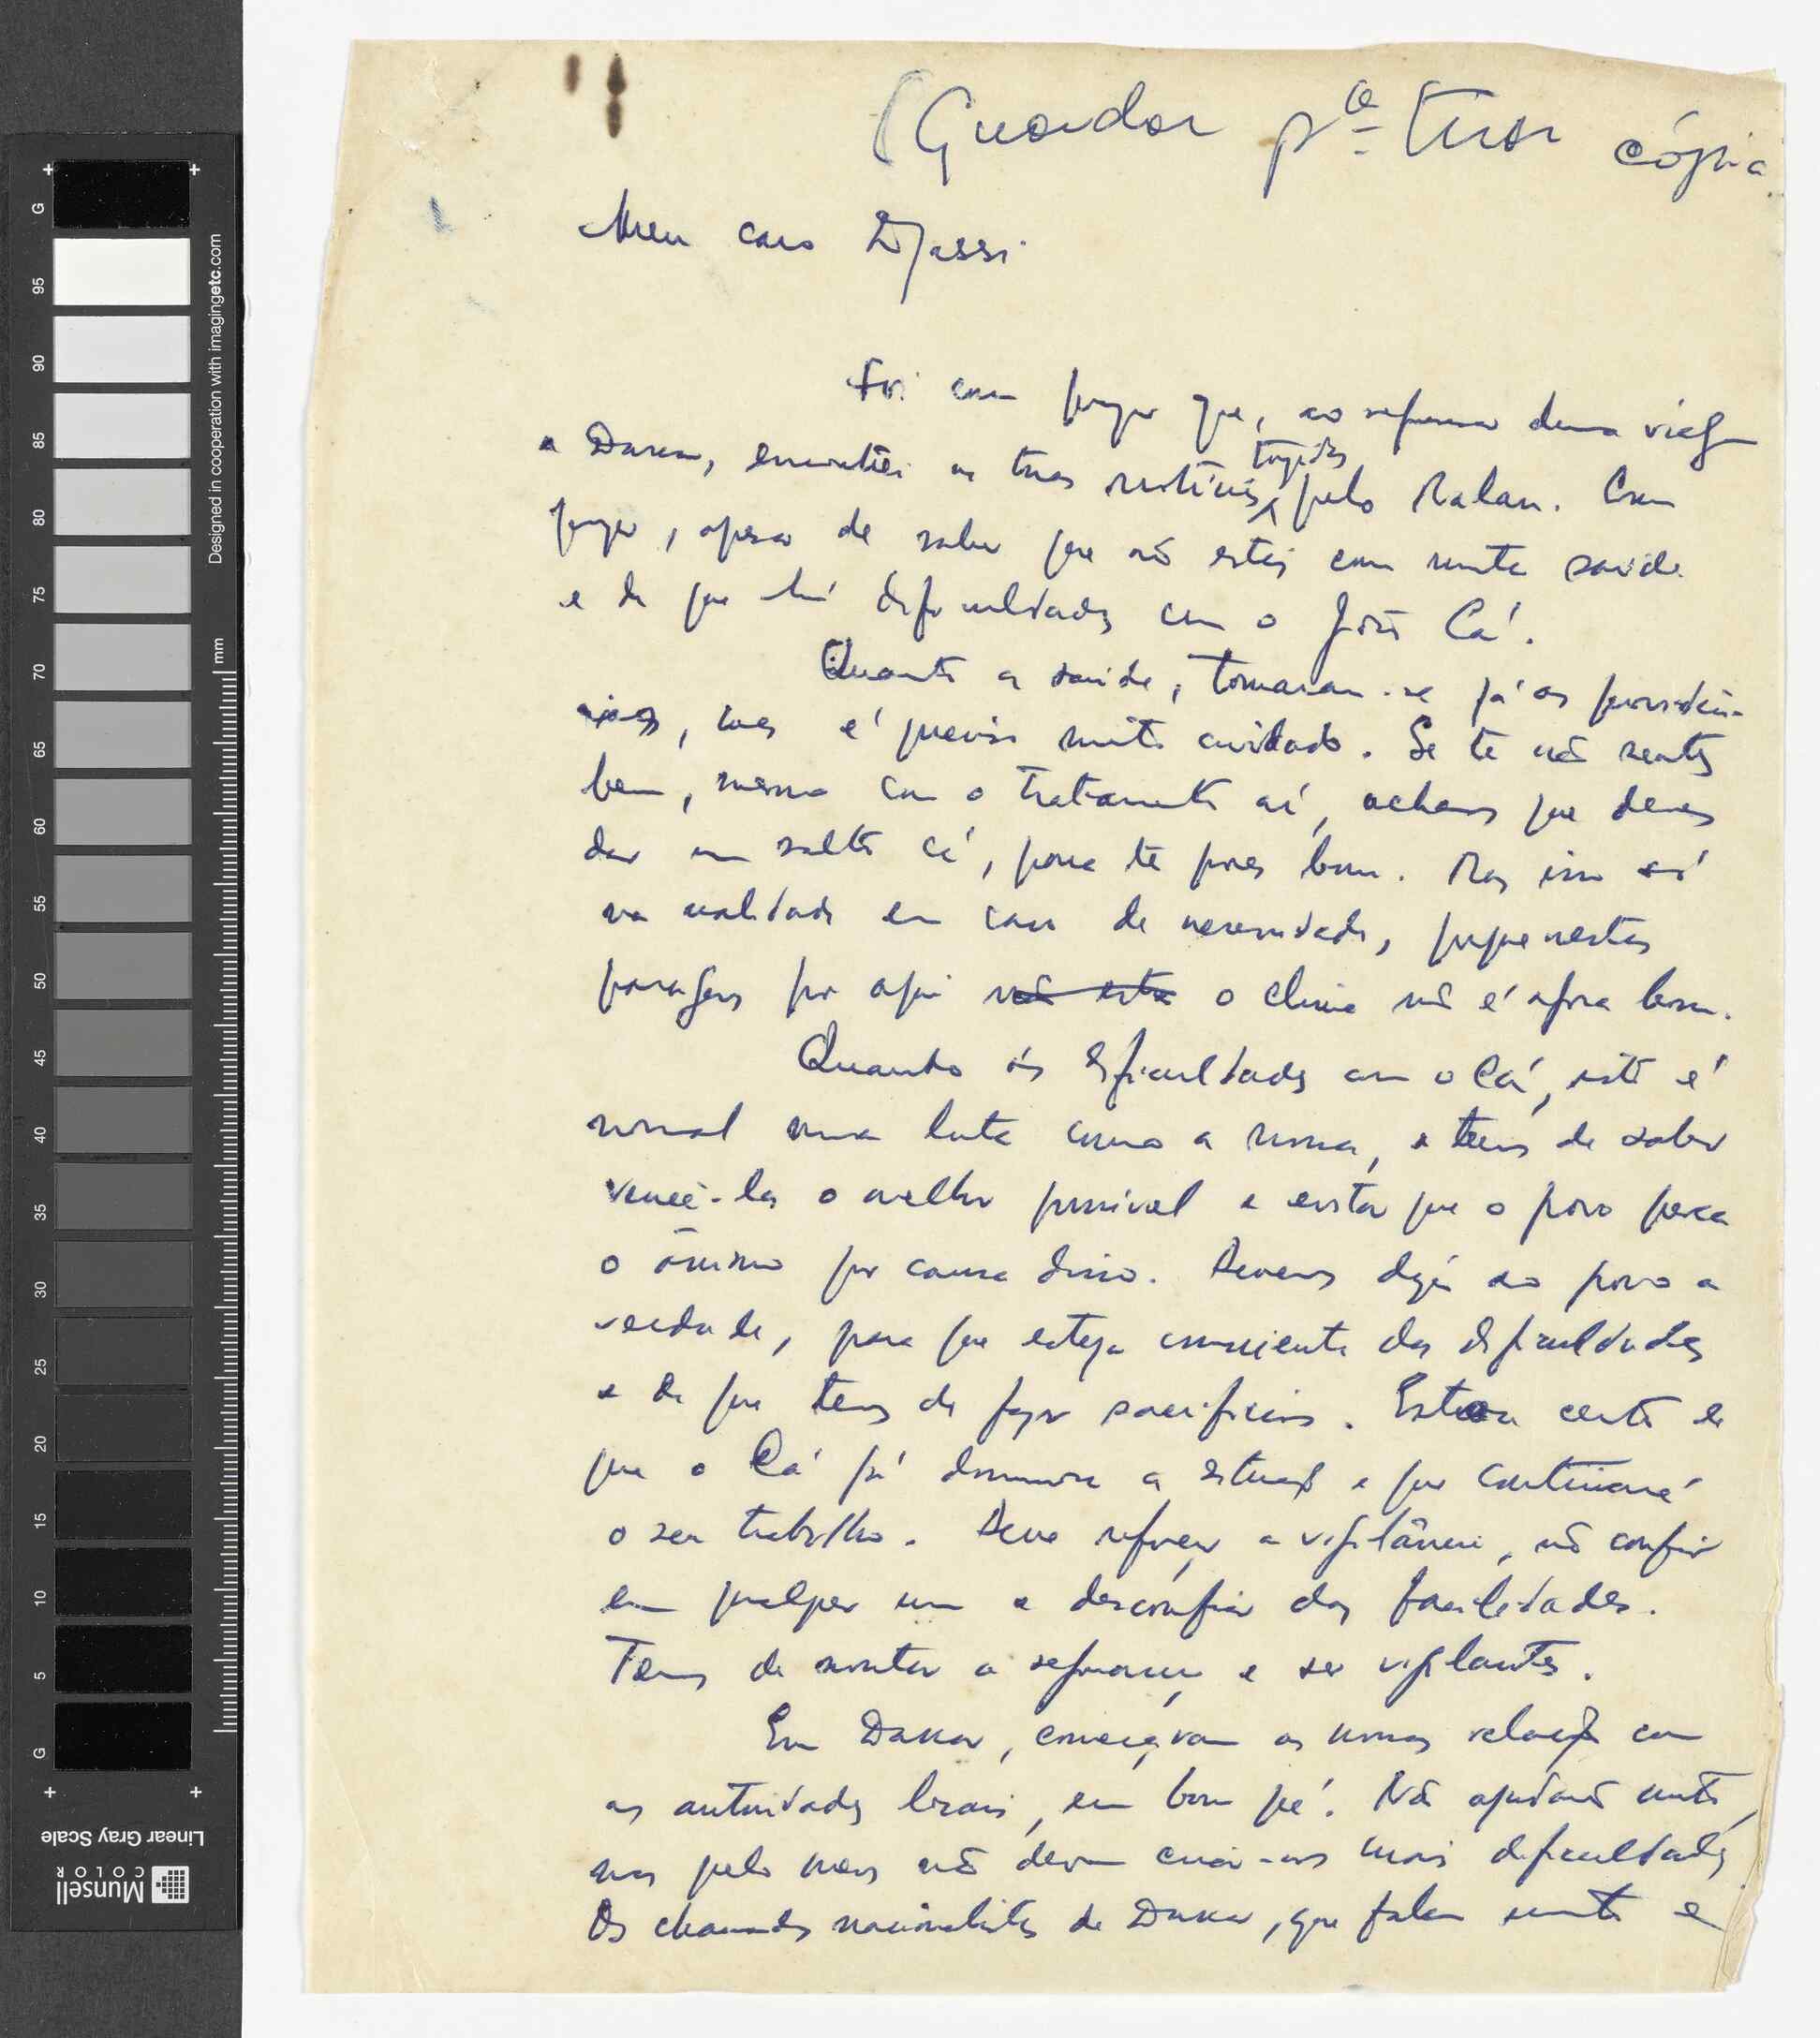 (Guardar pª tirar cópia
Meu caro Djassi
Foi com prazer que, ao regressar duma viagem
a Dakar, encontrei as tuas notícias trazidas pelo Malan. Com
prazer, apesar de saber que não estás com muita saúde
e de que há dificuldades com o João Cá.
Quanto a saúde, tomaram-se já as providên-
cias, mas é preciso muito cuidado. Se te não sentes
bem, mesmo com o tratamento aí, achamos que deves
dar um salto cá, para te pores bom. Mas isso só
na realidade em caso de necessidade, porque nestas
paragens por aqui não está o clima não é agora bom.
Quanto às dificuldades com o Cá, isto é
normal numa luta como a nossa, e temos de saber
vencê-las o melhor possível e evitar que o povo perca
o ânimo por causa disso. Devemos dizer ao povo a
verdade, para que esteja consciente das dificuldades
e de que temos de fazer sacrifícios. Estou certo de
que o Cá já domina a situação e que continuará
o seu trabalho. Deve reforçar a vigilância, não confiar
em qualquer um e desconfiar das facilidades.
Temos de montar a segurança e ser vigilantes.
Em Dakar, começaram as nossas relações com
as autoridades locais, em bom pé. Não ajudarão muito,
mas pelo menos não devem criar-nos mais dificuldades
Os chamados nacionalistas de Dakar, que falam muito e
G
95
90
85
80
75
70
65
60
55
50
45
40
35
30
25
20
15
10
5
G
mm
Designed in cooperation with imagingetc.com
Munsell
COLOR
Linear Gray Scale